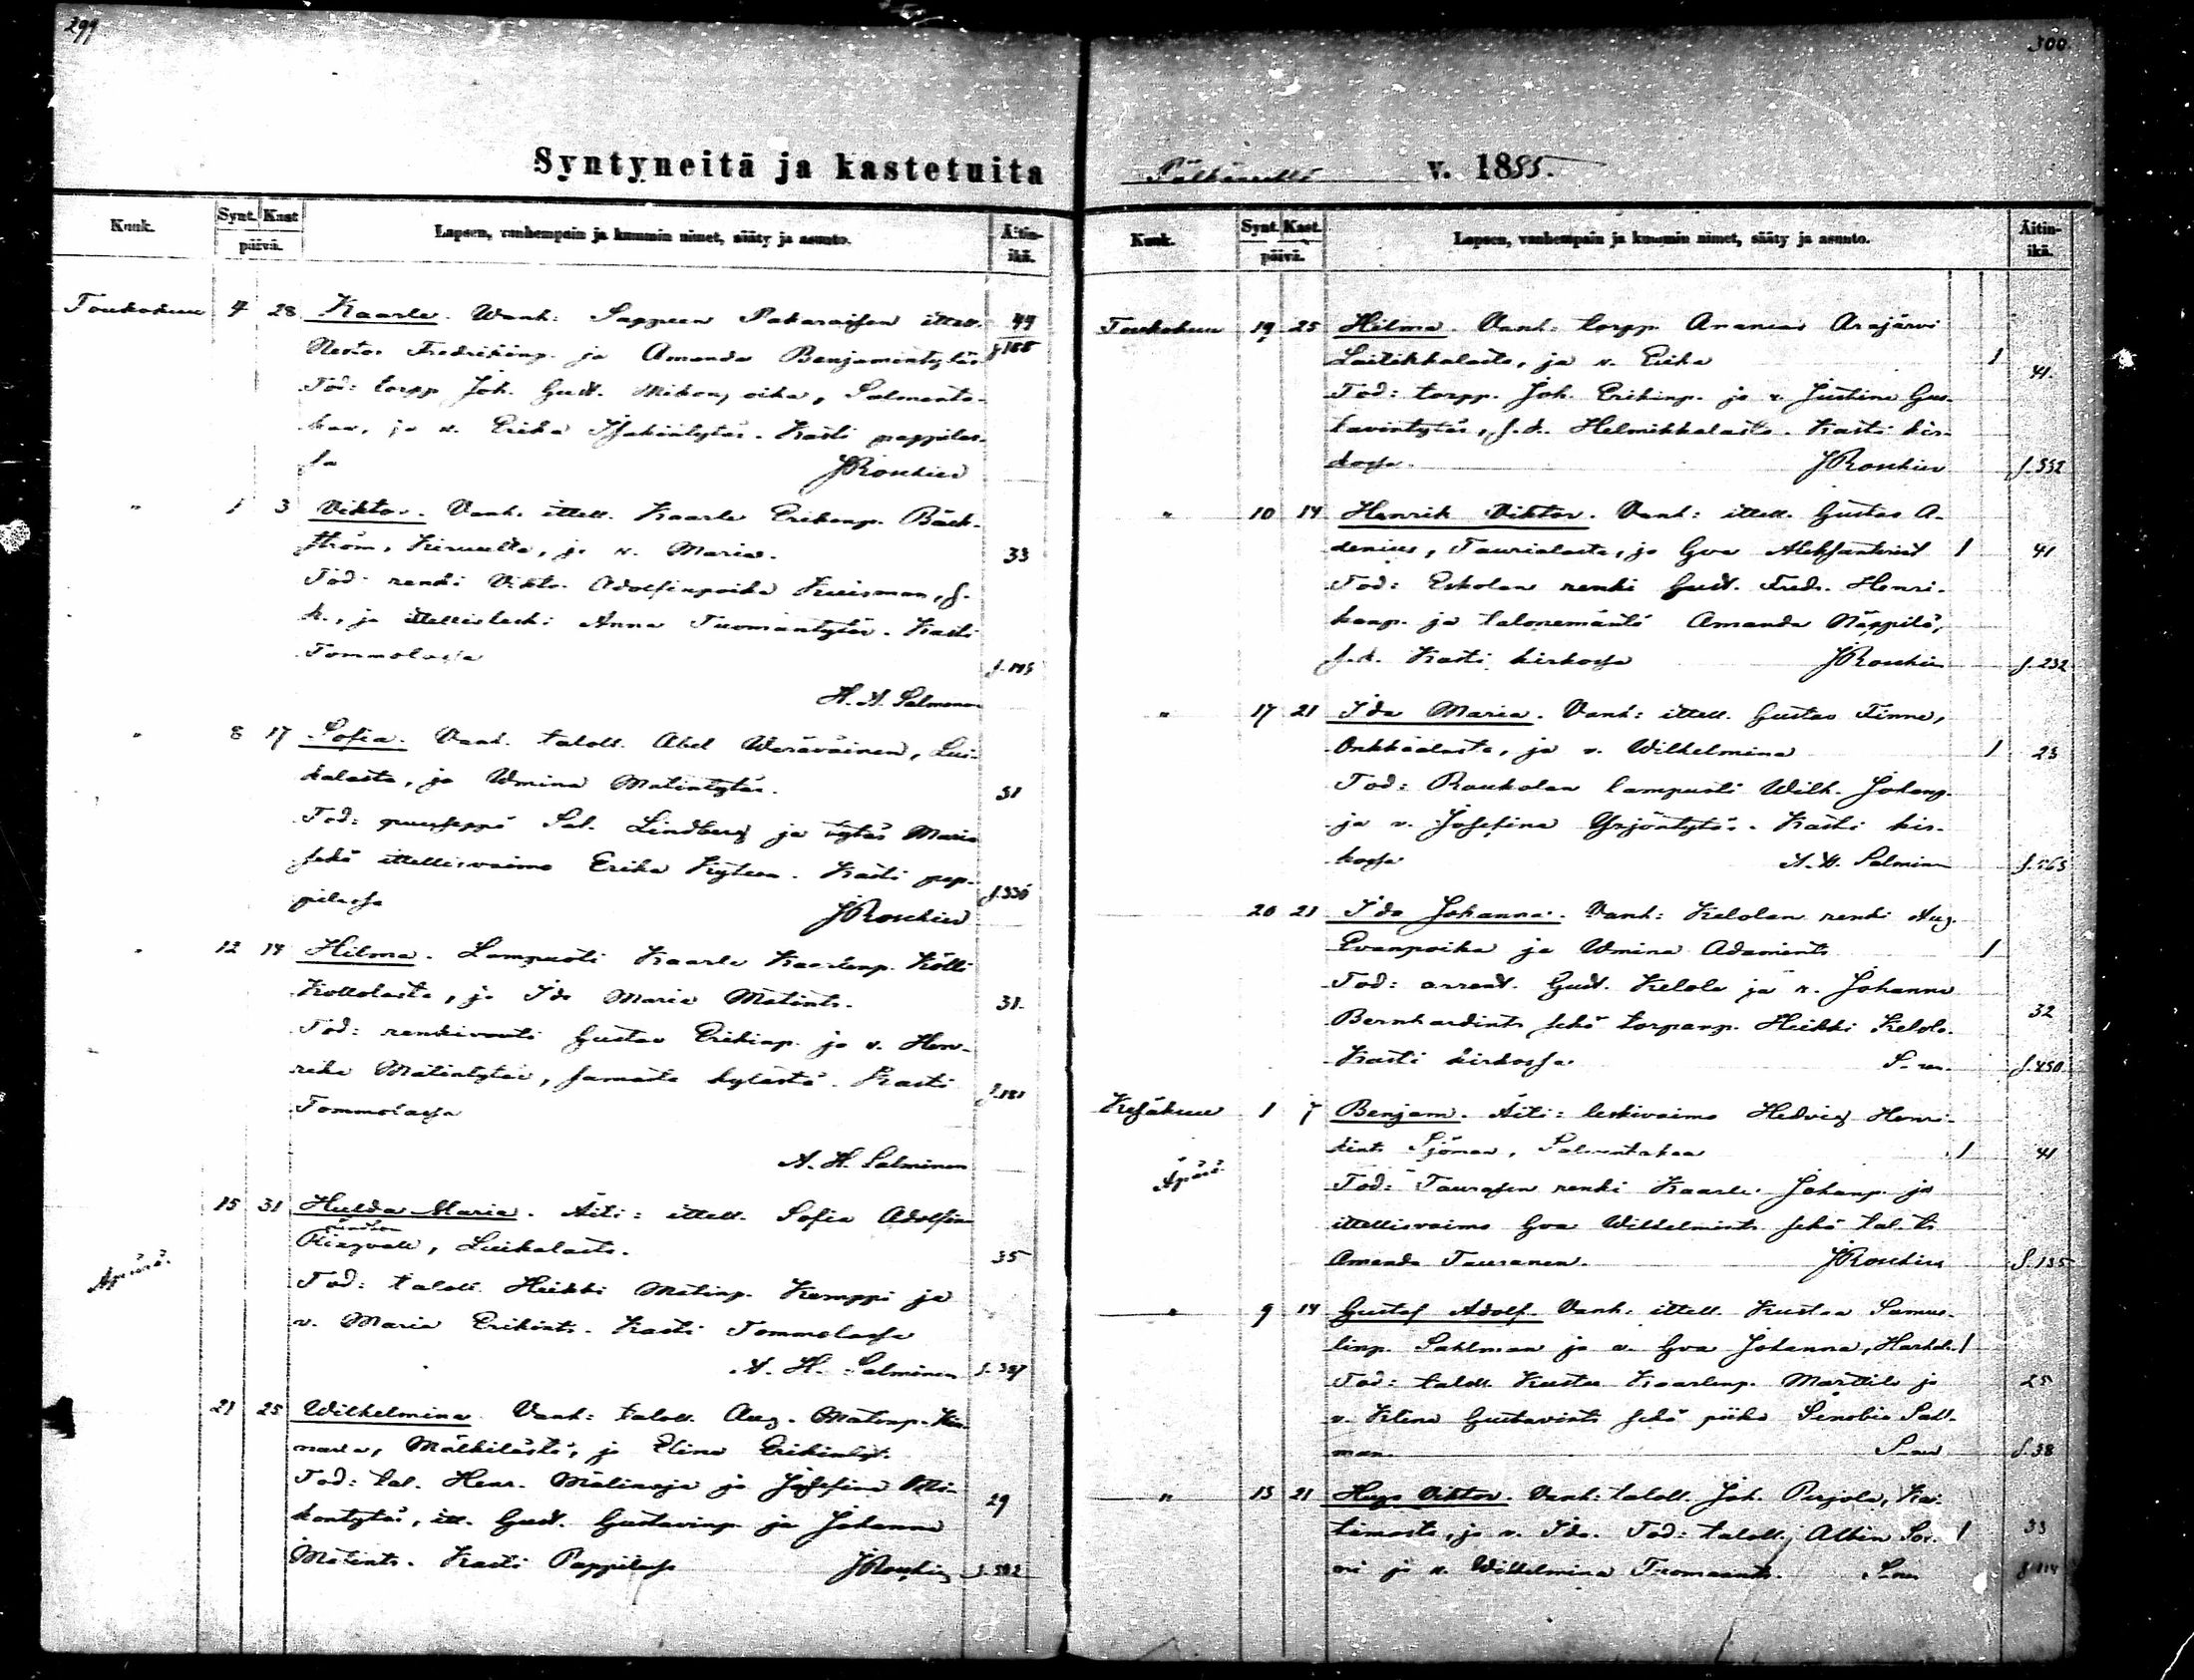 299
Syntyneitä ja kastetuita
Kuuk.
Synt. Kast
päivä.
Lapsen, vanhempain ja kummin nimet, sääty ja asunto.
Äitin-
ikä.
Toukokuu 4 28 Kaarle. Wanh: Sappeen Pakaraisen ittell. 44
Nestor Fredrikinp. ja Amanda Benjamintytär
Tod: torpp. Joh. Gust. Mikon, oika, Salmenta-
kaa, ja v. Erika Isakintytär. Kasti pappilas-
sa JRoschier
" 1 3 Viktor. Vanh. ittell. Kaarle Erikinp. Bäck-
ström, Kirvulta, ja v. Maria. 33
Tod: renki Vikto. Adolfinpoika Kuisman, s.
k., ja ittellisleski Anna Tuomantytär. Kasti
Tommolassa
H. A. Salminen
" 8 17 Sofia. Vanh. taloll. Abel Weräväinen, Lui-
kalasta, ja Wmina Matintytär. 31
Tod: puuseppä Sal. Lindberg ja tytär Maria
sekä ittellisvaimo Erika Kytren. Kasti pap- s.336
pilassa JRoschier
" 12 14 Hilma. Lampuoti Kaarle Kaarlenp. Kölli
Kollolasta, ja Ida Maria Matints. 31.
Tod: renkivouti Gustav Erikinp. ja v. Hen-
rika Matintytär, samasta kylästä. Kasti s.181
Tommolassa
A. H. Salminen
15 31 Hulda Maria. Äiti: ittell. Sofia Adolfin
Ringvall, Luikalasta. 35
Äpärä.
Tod: taloll. Heikki Matinp. Kemppi ja
v. Maria Erikints. Kasti Tommolassa
A. H. Salminen s.387
21 25 Wilhelmina. Vanh: taloll. Aug. Matinp.
Mälkilästä, ja Elina Erikintyt.
Tod: tal. Henr. Mälinoja ja Josefina Mi-
kontytär, itt. Gust. Gustavinp. ja Johanna 29
Matints. Kasti Pappilassa JRoschier
300.
Pälkäneellä v. 1885.
Kuuk.
Synt. Kast.
päivä.
Lapsen, vanhempain ja kummin nimet, sääty ja asunto.
Äitin-
ikä.
Toukokuu 19 25 Hilma. Vanh: torpp. Ananias Arajärvi
Laitikkalasta, ja v. Erika 1 41.
Tod: torpp. Joh. Erikinp. ja v. Justina Gus-
tavintytär, s.k. Helmikkalasta. Kasti kir-
kossa. JRoschier s.532
" 10 14 Henrik Viktor. Vanh: ittell. Gustav A-
denius, Taurialasta, ja Eva Aleksanterint 1 41
Tod: Eskolan renki Gust. Fredr. Henri-
kanp. ja talonemäntä Amanda Näppilä,
s.k. Kasti kirkossa JRoschier s.232
" 17 21 Ida Maria. Vanh: ittell. Gustav Finne,
Onkkaalasta, ja v. Wilhelmina 1 23
Tod: Raukolan lampuoti Wilh. Johanp.
ja v. Josefina Yrjöntytär. Kasti kir-
kossa A. H. Salminen
20 21 Ida Johanna. Vanh: Kelolan renki Aug.
Evanpoika ja Wmina Adamints 1
Tod: arrend. Gust. Kelola ja v. Johanna 32
Bernhardints sekä torpanp. Heikki Kelola.
Kasti kirkossa S-nen. s.450
Kesäkuu 1 7 Benjam. Äiti: leskivaimo Hedvig Henri-
kints Sjöman, Salmentakaa 1 41
Äpärä.
Tod: Taurasen renki Kaarle Johanp. ja
ittellisvaimo Eva Wilhelmints sekä tal. ts
Amanda Tauranen. JRoschier S.135
" 9 14 Gustaf Adolf. Vanh. ittell. Kustaa Samue-
linp. Sahlman ja v. Eva Johanna, Harhal. 1
Tod: taloll. Kustaa Kaarlenp. Marttila ja 25
v. Klina Gustavints sekä piika Senobia Sal-
man. S-nen S.38
" 15 21 Hugo Viktor. Vanh: taloll. Joh. Perjola, Kai-
tamosta, ja v. Ida. Tod: taloll. Albin Sor- 1 33
ri ja v. Wilhelmina Tuomaants. S-nen